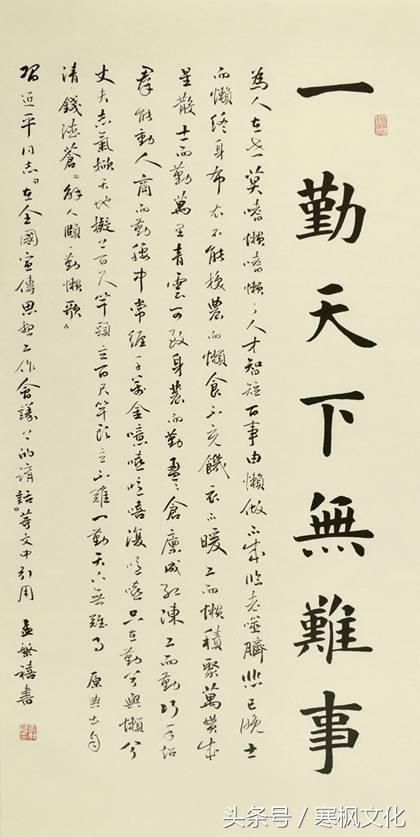 一勤天下無難事
為人在世莫嗜懶嗜懶之人才智短百事由懶做不成臨老噬臍悲已晚士
而懶終身布衣不能換農而懶食不充饑衣不暖工而懶積聚萬貫成
星散士而勤萬里青雲可致身農而勤盈倉廩成紅陳工而勤巧手超
群能動人商而勤腰中常纏千萬金噫嘻噫嘻復噫嘻只在勤兮與懶兮
丈夫志氣掀天地擬上百尺竿頭立百尺竿頭立不難一勤天下無難事 原典出自
清錢德蒼《解人頤·勤懶歌》
習近平同志在全國宣傳思想工作會議上的講話等文中引用 孟繁禧書
头条号 / 寒枫文化